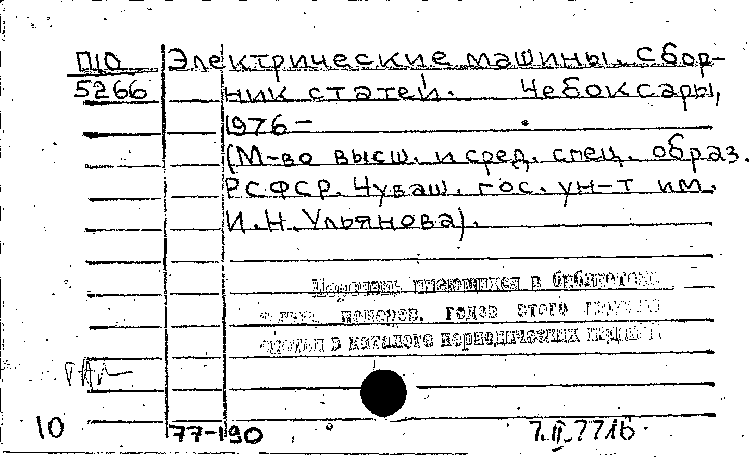 П10 Электрические машины. Сбор-
5266 ник статей. Чебоксары,
1976–
(М-во высш. и сред. спец. образ.
РСФСР. Чуваш. гос. ун-т им.
И.Н.Ульянова).
Перечень имеющихся в библиотеке
номеров, годов этого
в каталоге периодических
10 77-190 7.II.77